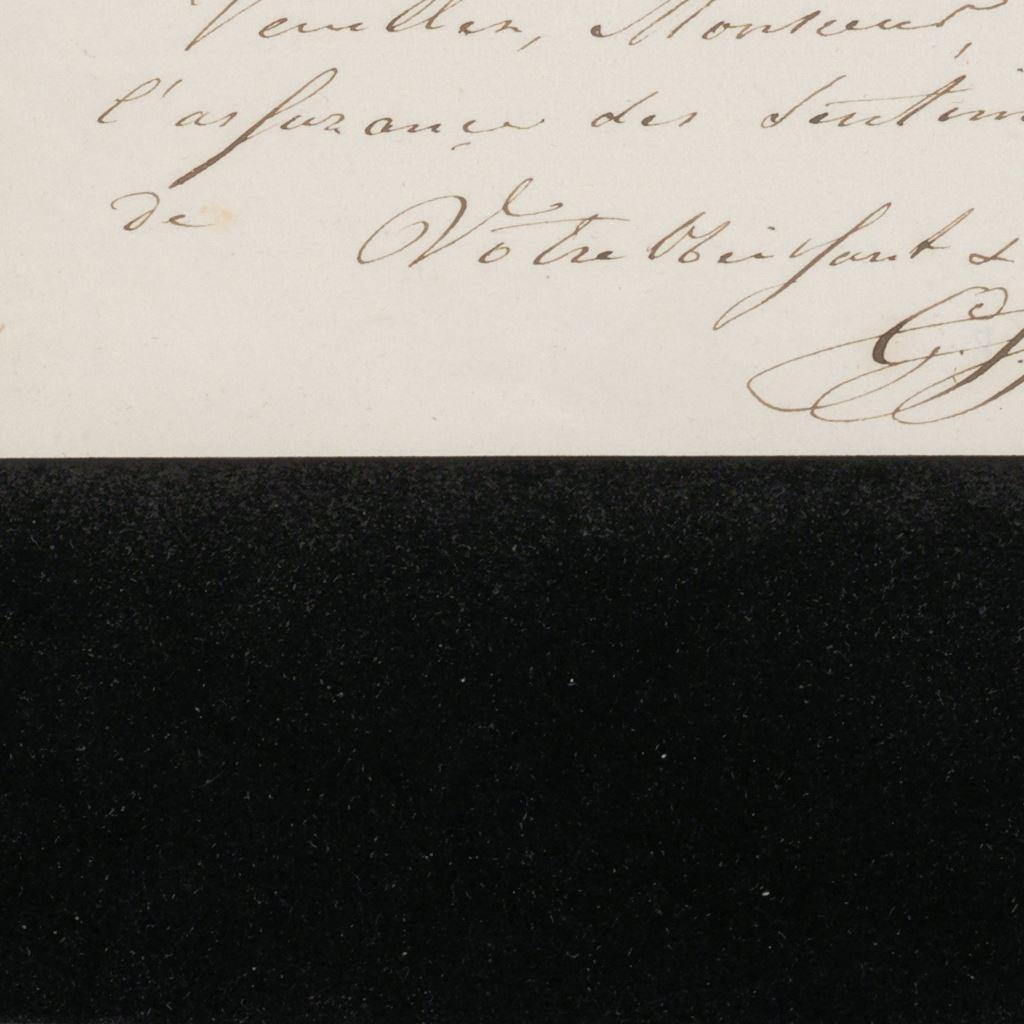 Veuillez, Monsieur,
l'assurance des sentim
de
Vôtre Obeissant &